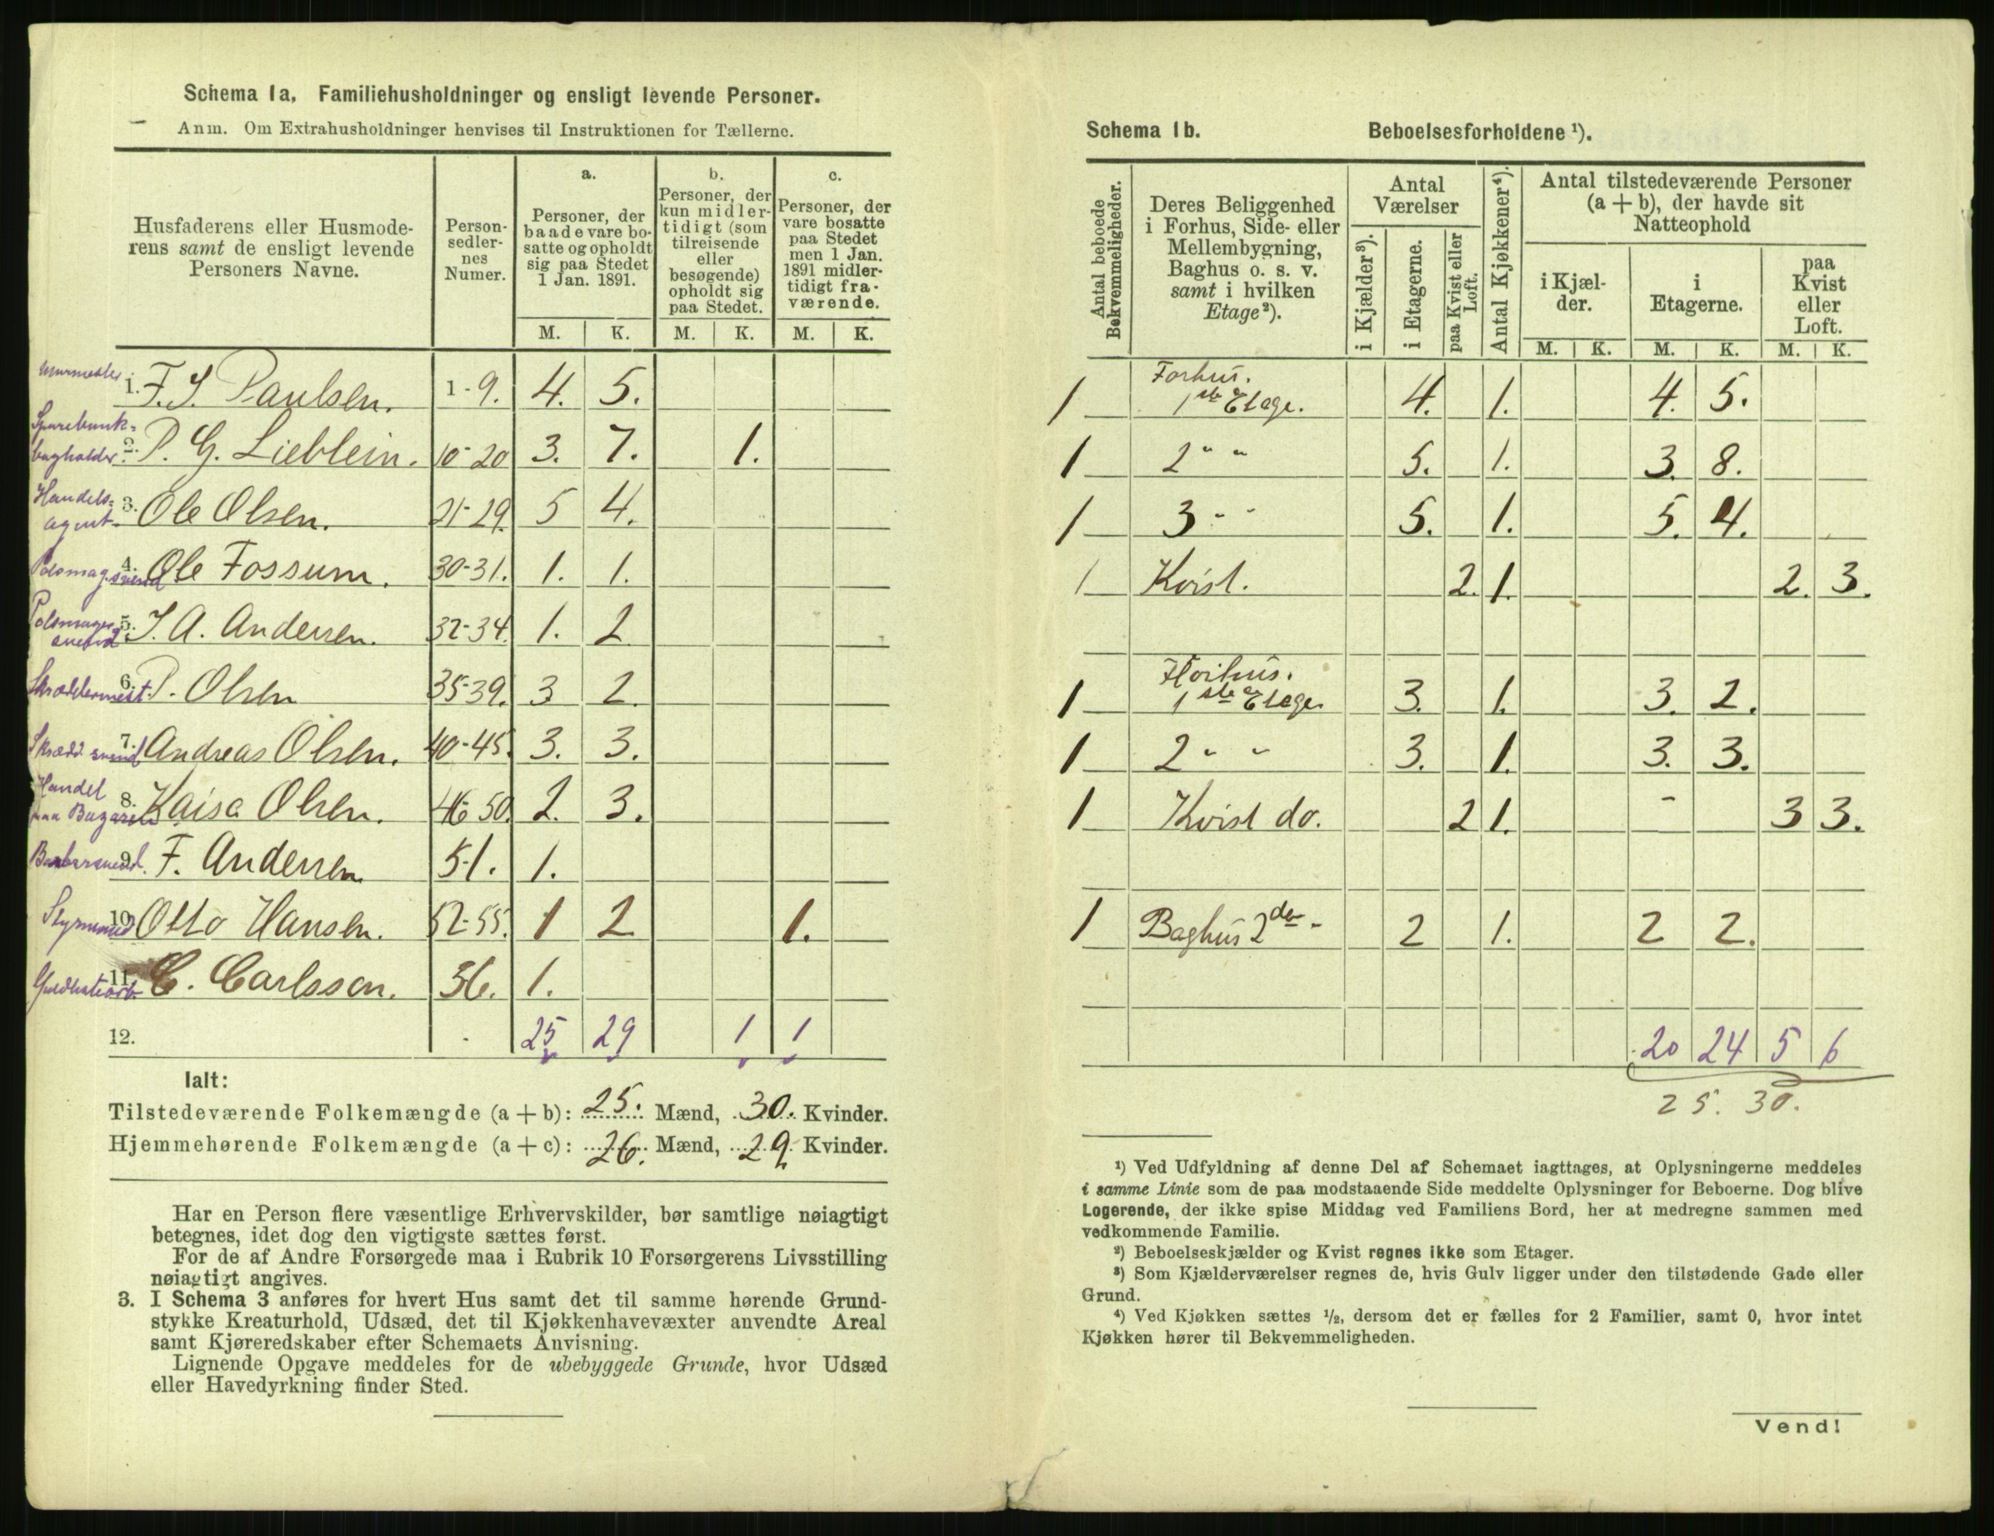 Schema 1a. Familiehusholdninger og ensligt levende Personer.
Anm. Om Extrahusholdninger henvises til Instruktionen for Tællerne.
Husfaderens eller Husmoderens samt de ensligt levende Personers Navne. | Personsedlernes Numer. | a. Personer, der baade vare bosatte og opholdt sig paa Stedet 1 Jan. 1891. | b. Personer, der kun midlertidigt (som tilreisende eller besøgende) opholdt sig paa Stedet. | c. Personer, der vare bosatte paa Stedet men 1 Jan. 1891 midlertidigt fraværende.
M. K. M. K. M. K.
Murmester 1. F. S. Paulsen. 1-9. 4. 5.
Sparebank-bogholder 2. P. G. Lieblein. 10-20 3. 7. 1.
Handelsagent 3. Ole Olsen. 21-29. 5 4.
4. Ole Fossum. 30-31. 1. 1.
5. J. A. Andersen. 32-34. 1. 2
Skræddermest. 6. P. Olsen 35-39. 3 2.
Skrædd. svend 7. Andreas Olsen. 40-45. 3. 3.
Handel paa Bazaren 8. Kaisa Olsen. 46-50. 2. 3.
Barbersvend. 9. F. Andersen 51. 1.
Styrmand 10. Otto Hansen. 52-55. 1 2 1.
11. C. Carlsson. 36. 1.
12. 25 29 1 1
Ialt:
Tilstedeværende Folkemængde (a + b): 25. Mænd, 30. Kvinder.
Hjemmehørende Folkemængde (a + c): 26. Mænd, 29 Kvinder.
Har en Person flere væsentlige Erhvervskilder, bør samtlige nøiagtigt
betegnes, idet dog den vigtigste sættes først.
For de af Andre Forsørgede maa i Rubrik 10 Forsørgerens Livsstilling
nøiagtigt angives.
3. I Schema 3 anføres for hvert Hus samt det til samme hørende Grund-
stykke Kreaturhold, Udsæd, det til Kjøkkenhavevæxter anvendte Areal
samt Kjøreredskaber efter Schemaets Anvisning.
Lignende Opgave meddeles for de ubebyggede Grunde, hvor Udsæd
eller Havedyrkning finder Sted.
Schema 1b. Beboelsesforholdene ¹).
Antal beboede Bekvemmeligheder. | Deres Beliggenhed i Forhus, Side- eller Mellembygning, Baghus o. s. v. samt i hvilken Etage ²). | Antal Værelser | i Kjælder ³). | i Etagerne. | paa Kvist eller Loft. | Antal Kjøkkener ⁴). | Antal tilstedeværende Personer (a + b), der havde sit Natteophold
i Kjælder. | i Etagerne. | paa Kvist eller Loft.
M. K. M. K. M. K.
1 Forhus. 1ste Etage. 4. 1. 4. 5.
1 2 " " 5. 1. 3. 8.
1 3 " " 5. 1. 5. 4.
1 Kvist. 2. 1. 2. 3.
1 Forhus. 1ste Etage. 3. 1. 3. 2.
1 2 " " 3. 1. 3. 3.
1 Kvist do. 2 1. - 3 3.
1 Baghus 2den - 2 1. 2 2.
20 24 5 6
25. 30.
¹) Ved Udfyldning af denne Del af Schemaet iagttages, at Oplysningerne meddeles
i samme Linie som de paa modstaaende Side meddelte Oplysninger for Beboerne. Dog blive
Logerende, der ikke spise Middag ved Familiens Bord, her at medregne sammen med
vedkommende Familie.
²) Beboelseskjælder og Kvist regnes ikke som Etager.
³) Som Kjælderværelser regnes de, hvis Gulv ligger under den tilstødende Gade eller
Grund.
⁴) Ved Kjøkken sættes ½, dersom det er fælles for 2 Familier, samt 0, hvor intet
Kjøkken hører til Bekvemmeligheden.
Vend!